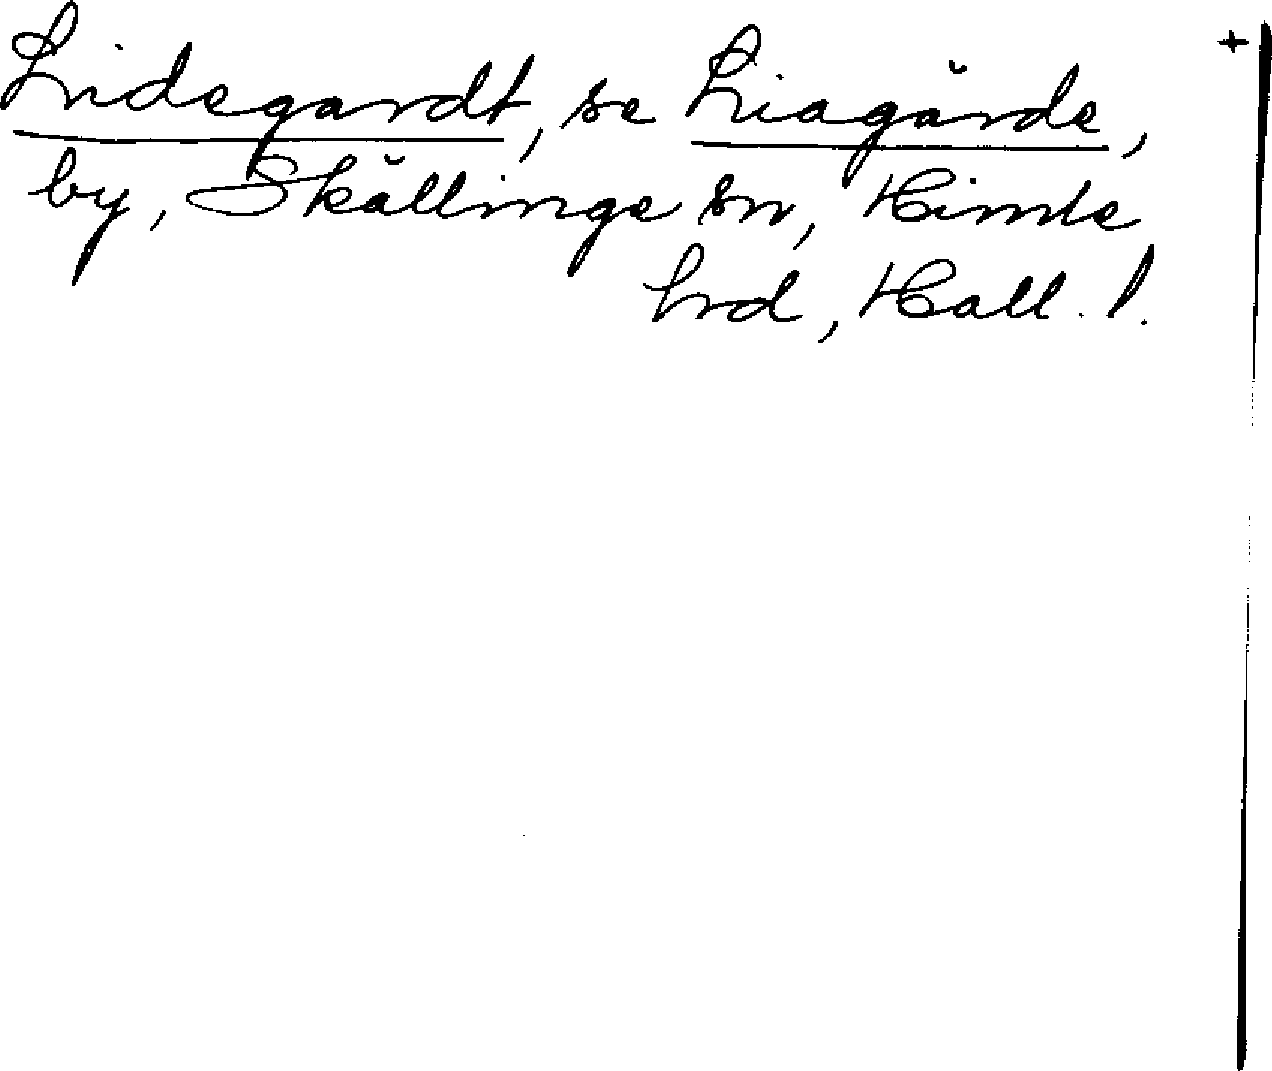 Lidegardt, se Liagärde, +
by, Skällinge sn, Himle
hrd, Hall. l.